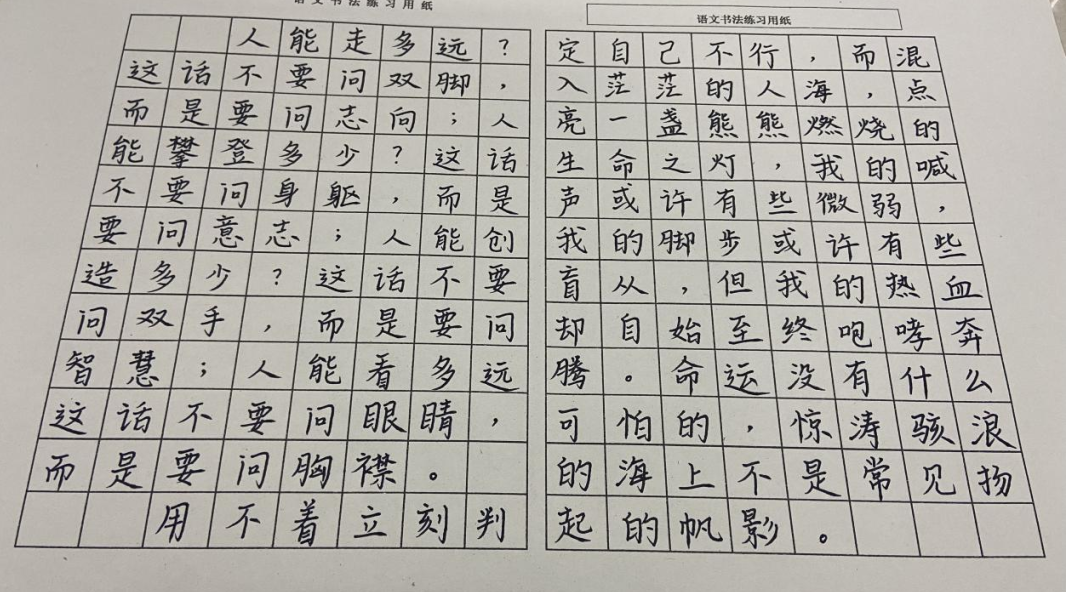 语文书法练习用纸
人能走多远？
这话不要问双脚，
而是要问志向；人
能攀登多少？这话
不要问身躯，而是
要问意志；人能创
造多少？这话不要
问双手，而是要问
智慧；人能看多远
这话不要问眼睛，
而是要问胸襟。
用不着立刻判
语文书法练习用纸
定自己不行，而混
入茫茫的人海，点
亮一盏熊熊燃烧的
生命之灯，我的喊
声或许有些微弱，
我的脚步或许有些
盲从，但我的热血
却自始至终咆哮奔
腾。命运没有什么
可怕的，惊涛骇浪
的海上不是常见扬
起的帆影。